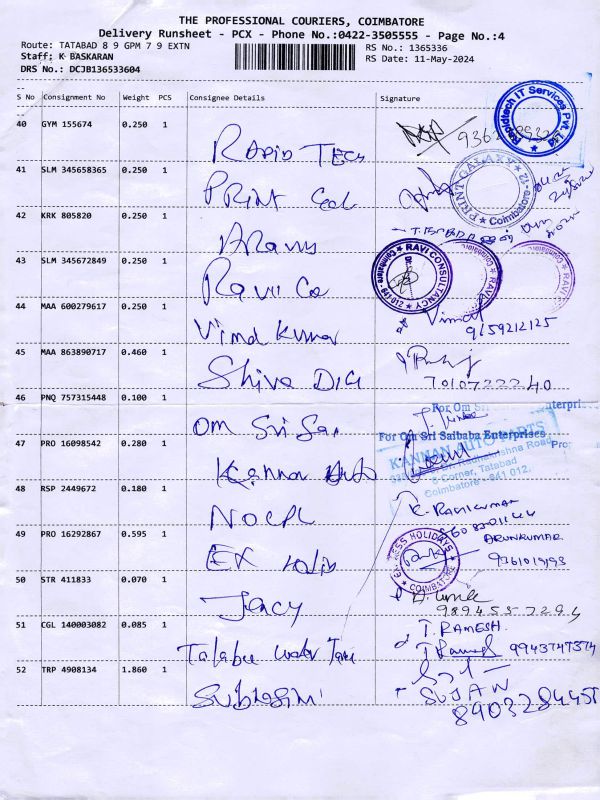 THE PROFESSIONAL COURIERS, COIMBATORE
Delivery Runsheet - PCX - Phone No.:0422-3505555 - Page No.:4
Route: TATABAD 8 9 GPM 7 9 EXTN RS No.: 1365336
Staff: K BASKARAN RS Date: 11-May-2024
DRS No.: DCJB136533604
S No Consignment No Weight PCS Consignee Details Signature
Rapidtech IT Services Pvt. Ltd
40 GYM 155674 0.250 1 RAPID TECH
41 SLM 345658365 0.250 1 PRINT Gal PRINT GALAXY Coimbatore-12
42 KRK 805820 0.250 1
43 SLM 345672849 0.250 1 Ravi Co RAVI CONSULTANCY Coimbatore RAVI RAVI
44 MAA 600279617 0.250 1 Vimal Kumar Vimal
9159212125
45 MAA 863890717 0.460 1 Shiva DIGI
7010722240
46 PNQ 757315448 0.100 1 OM Sri Sai For Om Sri
For Om Sri Saibaba Enterprises
47 PRO 16098542 0.280 1 Kannan Auto KANNAN AUTO PARTS
Radhakrishna Road,
Corner, Tatabad
Coimbatore - 641 012.
48 RSP 2449672 0.180 1 NOCPL K. RAVIKUMAR
49 PRO 16292867 0.595 1 EX Holi HOLIDAYS COIMBATORE ARUNKUMAR
50 STR 411833 0.070 1 Jency
51 CGL 140003082 0.085 1 Tatabad water Tank T. RAMESH
9943747374
52 TRP 4908134 1.860 1 SUJAN